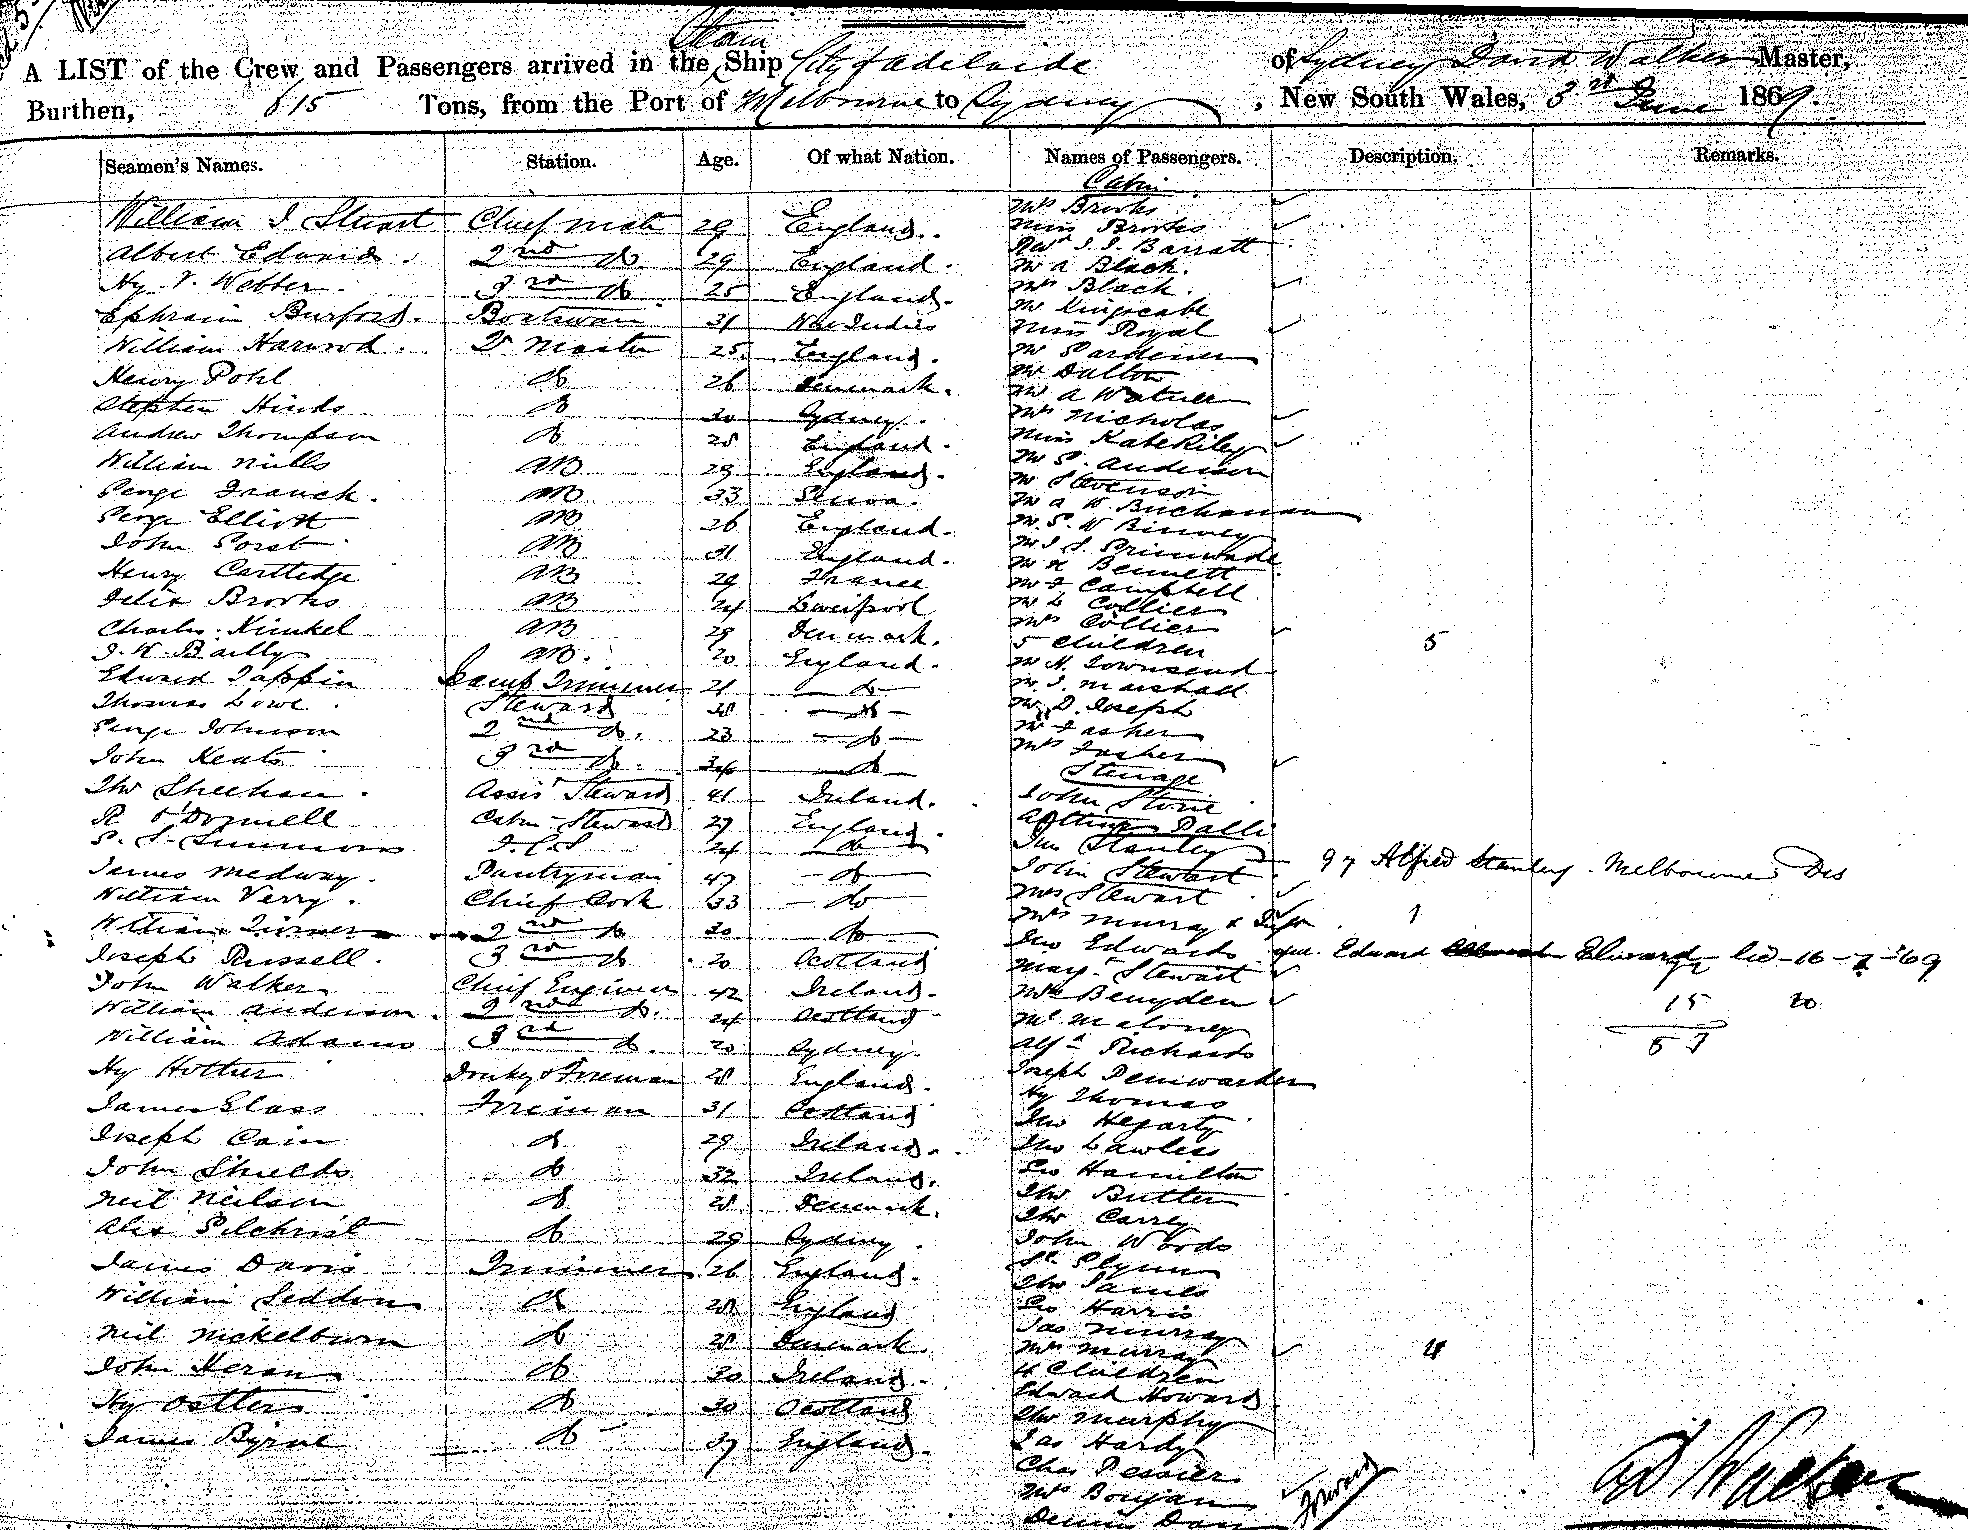 Steam
A LIST of the Crew and Passengers arrived in the Ship City of Adelaide of Sydney David Walker Master,
Burthen, 615 Tons, from the Port of Melbourne to Sydney, New South Wales, 3rd June 1869.
Seamen's Names. Station. Age. Of what Nation. Names of Passengers. Description. Remarks.
Cabin
William J Stuart Chief mate 29 England.
Albert Edward 2nd do 29 England.
Hy. V. Webber 3rd do 25 England.
Ephraim Burford Boatswain 31 West Indies
William Harwood Qr Master 25 England.
Henry Pohl do 26 Denmark.
Stephen Hinds do 30 Sydney.
Andrew Thompson do 28 England.
William Mills AB 29 England.
George Franck AB 33
George Elliott AB 26 England.
John AB 31 England.
Henry Cartledge AB 29 France
Felix Brooks AB 24 Liverpool
Charles Kunkel AB 29 Denmark.
J. W. Bailly AB. 20 England.
Edward Tappin Lamp Trimmer 21 do
Thomas Lowe Steward 38 do
George Johnson 2nd do. 23 do
John Keats 3rd do. 34 do
Thos Sheehan Assist Steward 41 Ireland.
R O'Donnell Cabin Steward 27 England.
S. S. Simmons 24 do
James Medway Pantryman 47 do
William Verry Chief Cook 33 do
William Turner 2nd do 30 do
Joseph Russell 3rd do 20 Scotland
John Walker Chief Engineer 42 Ireland.
William Anderson 2nd do. 24 Scotland
William Adams 3rd do. 20 Sydney.
Hy Donkey & Fireman 28 England.
James Glass Fireman 31 Scotland
Joseph Cain do 29 Ireland.
John Shields do 32 Ireland.
Neil Neilson do 28 Denmark.
Alex Gilchrist do 29 Sydney.
James Davis Trimmer 26 England.
William Seddon do 28 England
Neil Nickelburn do 28 Denmark.
John Heran do 30 Ireland.
Hy Ostler do 30 Scotland
James Byrne do 37 England.
Mrs Brooks
Miss Brooks
Revd J. J. Barratt
Mr A Black.
Mrs Black.
Mr Kingscable
Miss Royal
Mr Gardener
Mr Dutton
Mr A
Mrs Nicholas
Miss Kate Riley
Mr S. Anderson
Mr Stevenson
Mr A W Buchanan
Mr. S. W Binney
Mr J S. Grimwade
Mr H Bennett
Mr F Campbell
Mr L Collier
Mrs Collier
5 Children 5
Mr H. Townsend
Mr. J. Marshall
Mr D. Joseph
Mr Fasher
Mrs Fasher
Steerage
John Stone
Ralli
Jno Stanley Alfred Stanley. Melbourne Des
John Stewart
Mrs Stewart
Mrs Murray & Infn 1
Jno Edwards que. Edward Edwards 16-7-69
Mary Stewart
Mrs Benyden 15 20
Mr Maloney 57
Alfd Richards
Joseph Peniwarden
Hy Thomas
Jno Hegarty
Thos Lawless
Geo Hamilton
Thos Butler
Thos Carrey
John Woods
Flynn
Thos James
Geo Harris
Jas Murray
Mrs Murray
4 Children 4
Edward Howard
Thos Murphy
Jas Hardy
Chas Pessier
Mrs Bonjam
Dennis
D Walker